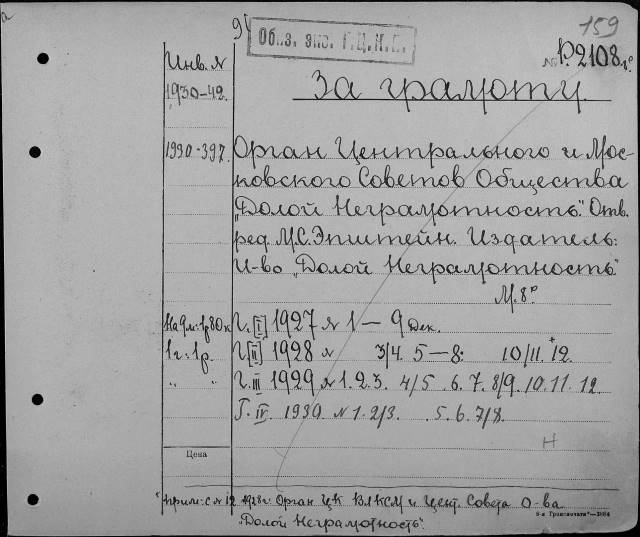 159
94
Обяз. экз. Г.Ц.К.П.
№ Р.2108
Инв. №
1930-42.
За грамоту.
1990-397.
Орган Центрального и Мос-
ковского Советов Общества
„Долой Неграмотность". Отв.
ред. М.С. Эпштейн. Издатель:
И-во „Долой Неграмотность"
М. 8°
На 9 м: 1р 80к
Г. [I] 1927 № 1 — 9 дек.
1 г: 1 р.
Г. [II] 1928 № 3/4. 5 — 8: 10/11. + 12.
" "
Г. III 1929 № 1. 2. 3. 4/5 .6. 7. 8/9. 10. 11. 12.
Г. IV. 1930. № 1. 2/3. .5. 6. 7/8.
Н
Цена
Прим: с № 12 1928 г: Орган ЦК ВЛКСМ и Цент. Совета О-ва
„Долой Неграмотность".